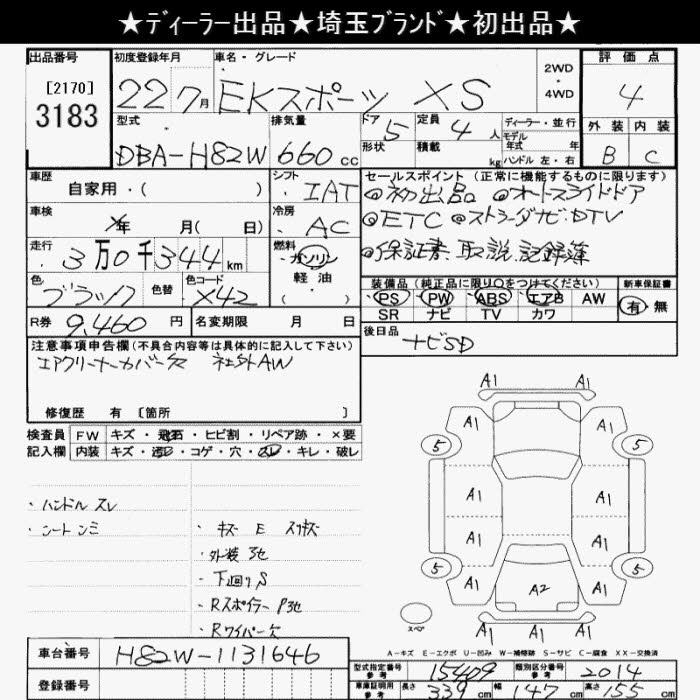 ★ディーラー出品★埼玉ブランド★初出品★
出品番号
[2170]
3183
初度登録年月
22 7月
車名・グレード
EKスポーツ XS
2WD
・
4WD
評価点
4
外装 内装
B C
型式
DBA-H82W
排気量
660cc
ドア 5
形状
定員 4人
積載 kg
ディーラー・並行
モデル
年式 年
ハンドル 左・右
車歴
自家用・( )
シフト
IAT
セールスポイント(正常に機能するものに限ります)
◎初出品 ◎オートスライドドア
◎ETC ◎ストラーダナビ DTV
◎保証書 取説 記録簿
車検
年 月( 日)
冷房
AC
走行
3万0千344km
燃料
ガソリン
・
軽油
・( )
色
ブラック
色替
色コード
X42
装備品(純正品に限り○をつけてください)
PS PW ABS エアB AW
SR ナビ TV カワ
新車保証書
有・無
R券 9,460円
名変期限 月 日
後日品
ナビSD
注意事項申告欄(不具合内容等は具体的に記入して下さい)
エアクリーナーカバー欠 社外AW
修復歴 有 [箇所 ]
検査員
記入欄
FW キズ・飛石・ヒビ割・リペア跡・×要
内装 キズ・汚れ・コゲ・穴・スレ・キレ・破レ
・ハンドル スレ
・シート シミ
・キズ E スリキズ
・外装 3他
・下回り S
・Rスポイラー P3他
・Rワイパー欠
A1 A1
A1 A1
5 5
A1 A1
A1 A1
5 5
A1 A2 A1
A1 A1
スペア
A-キズ E-エクボ U-凹み W-補修跡 S-サビ C-腐食 XX-交換済
車台番号
H82W-1131646
登録番号
型式指定番号
参考
15409
類別区分番号
参考
2014
車庫証明用
参考
長さ 339cm 幅 147cm 高さ 155cm